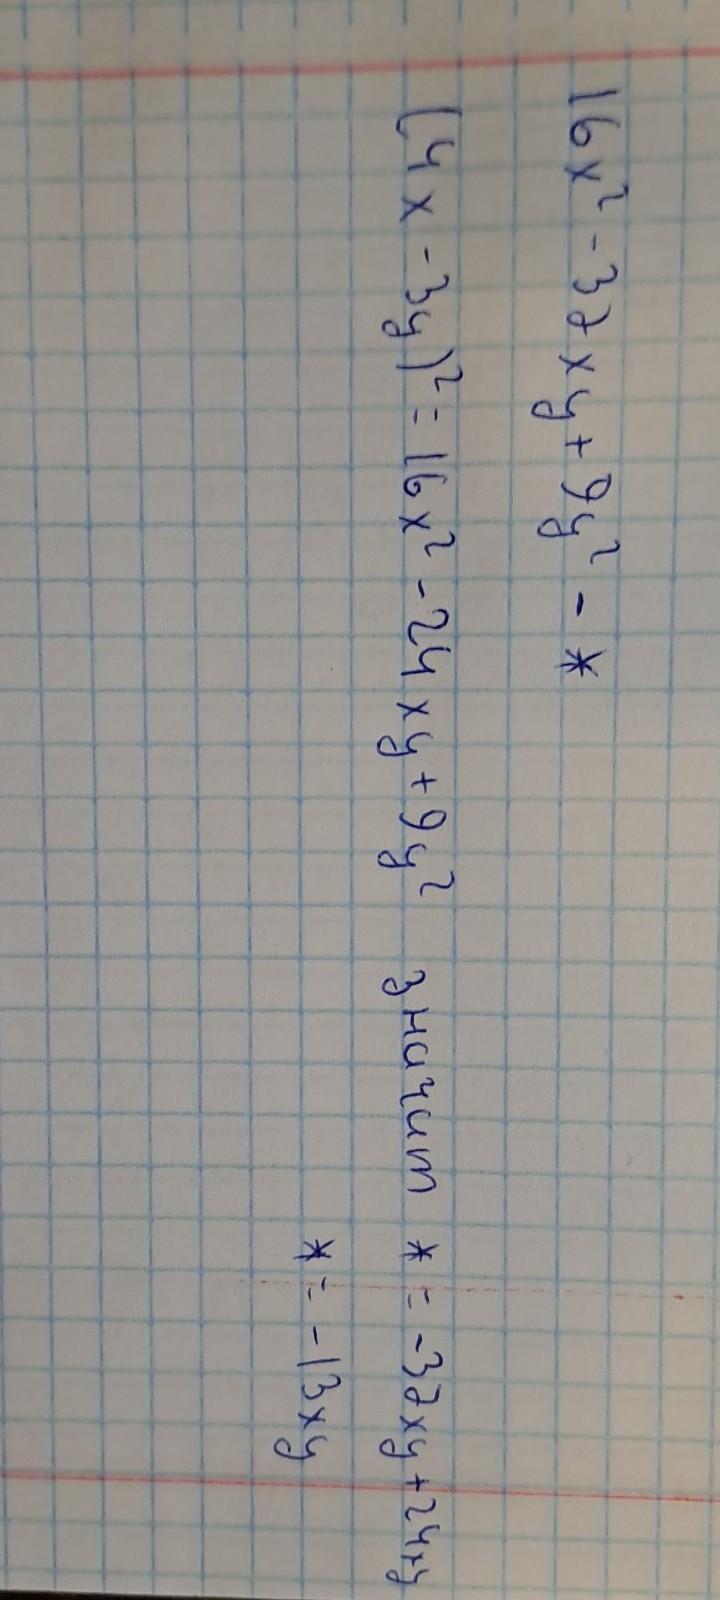 16x² - 37xy + 9y² - *
(4x - 3y)² = 16x² - 24xy + 9y² значит * = -37xy + 24xy
* = -13xy